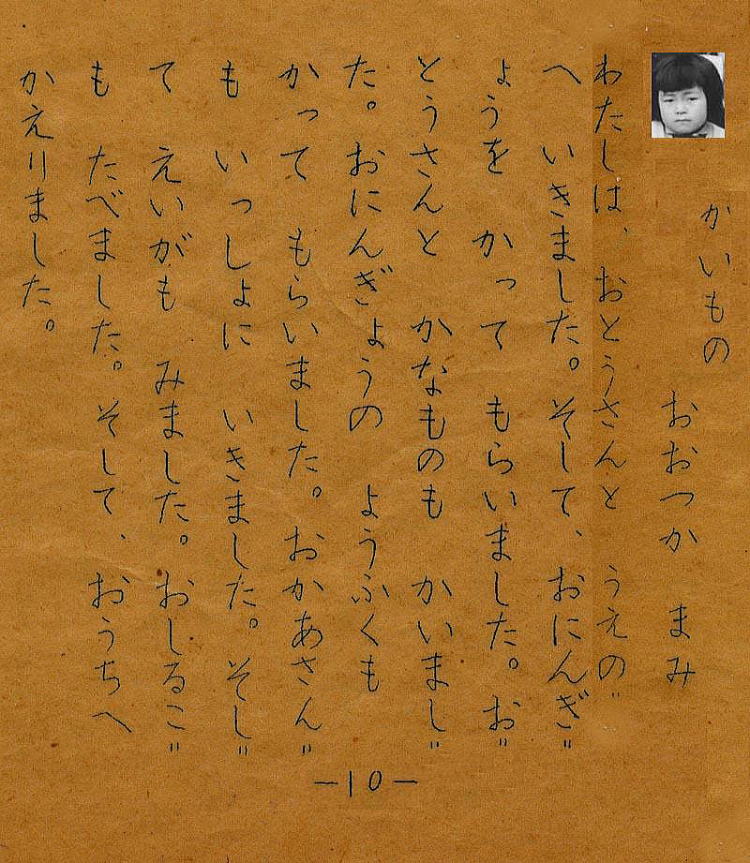 かいもの
おおつか まみ
わたしは、おとうさんと うえの〃
へ いきました。そして、おにんぎ〃
ょうを かって もらいました。お〃
とうさんと かなものも かいまし〃
た。おにんぎょうの ようふくも
かって もらいました。おかあさん〃
も いっしょに いきました。そし〃
て えいがも みました。おしるこ〃
も たべました。そして、おうちへ
かえりました。
—10—